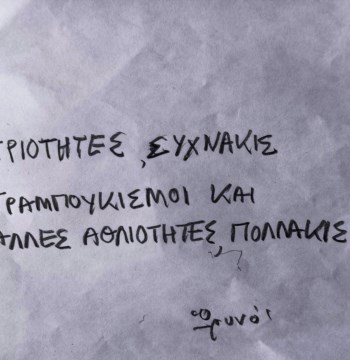 ΤΡΙΟΤΗΤΕΣ, ΣΥΧΝΑΚΙΣ
ΤΡΑΜΠΟΥΚΙΣΜΟΙ ΚΑΙ
ΑΛΛΕΣ ΑΘΛΙΟΤΗΤΕΣ, ΠΟΛΛΑΚΙΣ